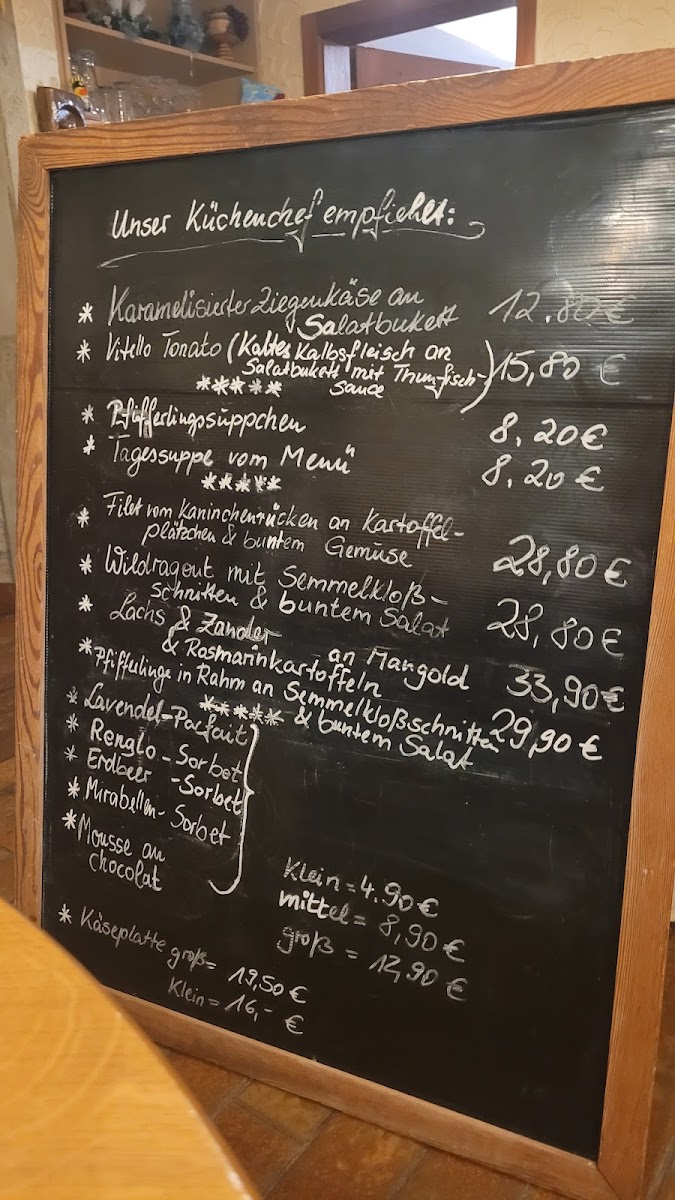 Unser Küchenchef empfiehlt:
* Karamelisierter Ziegenkäse an 12.80€
Salatbukett
* Vitello Tonato (Kaltes Kalbsfleisch an 15,80 €
Salatbukett mit Thunfisch-
sauce)
*****
* Pfifferlingssüppchen 8,20€
* Tagessuppe vom Menü 8.20€
*****
* Filet vom Kaninchenrücken an Kartoffel-
plätzchen & buntem Gemüse 28,80€
* Wildragout mit Semmelkloß-
schnitten & buntem Salat 28,80€
* Lachs & Zander an Mangold 33,90€
& Rosmarinkartoffeln
* Pfifferlinge in Rahm an Semmelkloßschnitten 29,90€
& buntem Salat
*****
* Lavendel-Parfait
* Renglo-Sorbet
* Erdbeer-Sorbet
* Mirabellen-Sorbet
* Mousse au
chocolat
Klein = 4.90€
mittel = 8,90€
groß = 12,90€
* Käseplatte groß = 19,50€
Klein = 16,- €